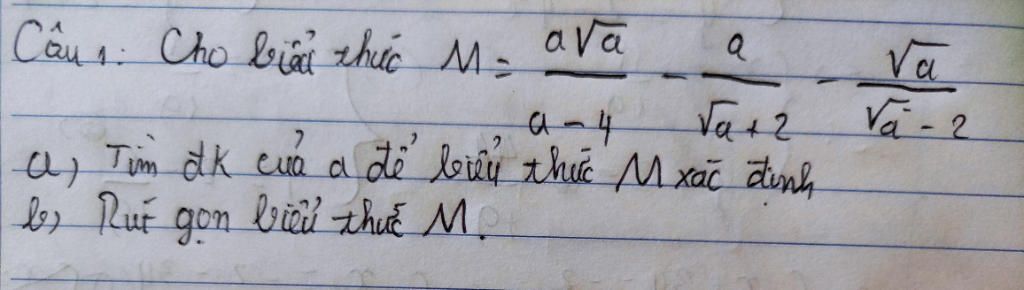 Câu 1: Cho biểu thức M = a√a / a - 4 - a / √a + 2 - √a / √a - 2
a, Tìm đk của a để biểu thức M xác định
b, Rút gọn biểu thức M.